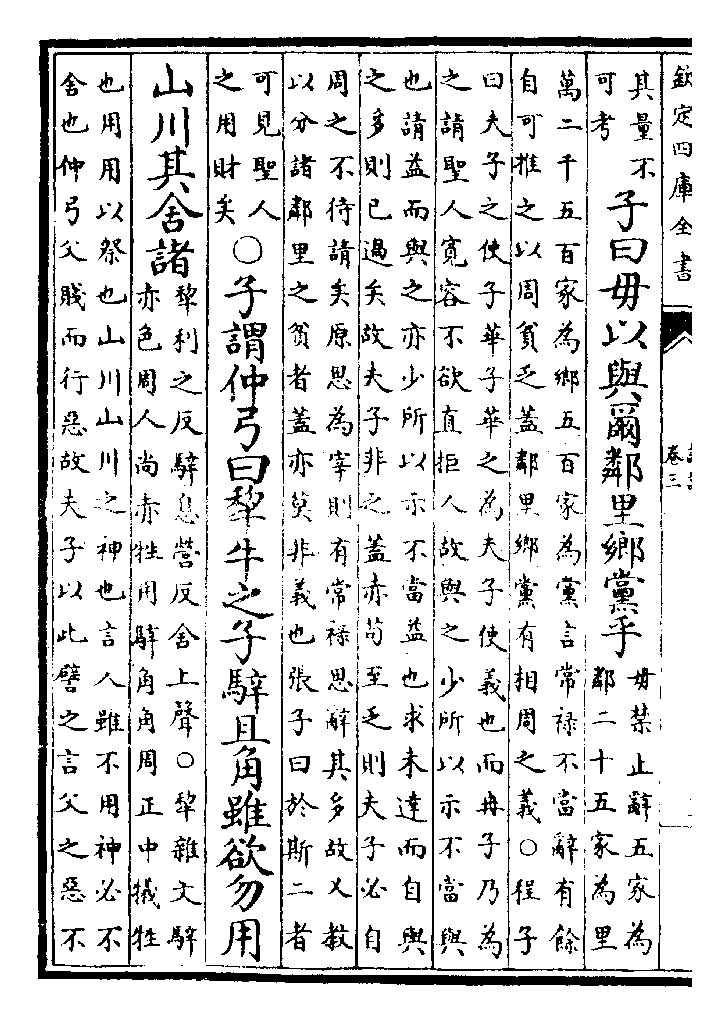 欽定四庫全書
卷三
其量不
可考
子曰毋以與爾鄰里鄉黨乎
毋禁止辭五家為
鄰二十五家為里
萬二千五百家為鄉五百家為黨言常禄不當辭有餘
自可推之以周貧乏蓋鄰里鄉黨有相周之義○程子
曰夫子之使子華子華之為夫子使義也而冉子乃為
之請聖人寛容不欲直拒人故與之少所以示不當與
也請益而與之亦少所以示不當益也求未達而自與
之多則已過矣故夫子非之蓋赤苟至乏則夫子必自
周之不待請矣原思為宰則有常禄思辭其多故又教
以分諸鄰里之貧者蓋亦莫非義也張子曰於斯二者
可見聖人
之用財矣
○子謂仲弓曰犂牛之子騂且角雖欲勿用
山川其舍諸
犂利之反騂息營反舍上聲○犂雜文騂
亦色周人尚赤牲用騂角角周正中犧牲
也用用以祭也山川山川之神也言人雖不用神必不
舍也仲弓父賤而行惡故夫子以此譬之言父之惡不